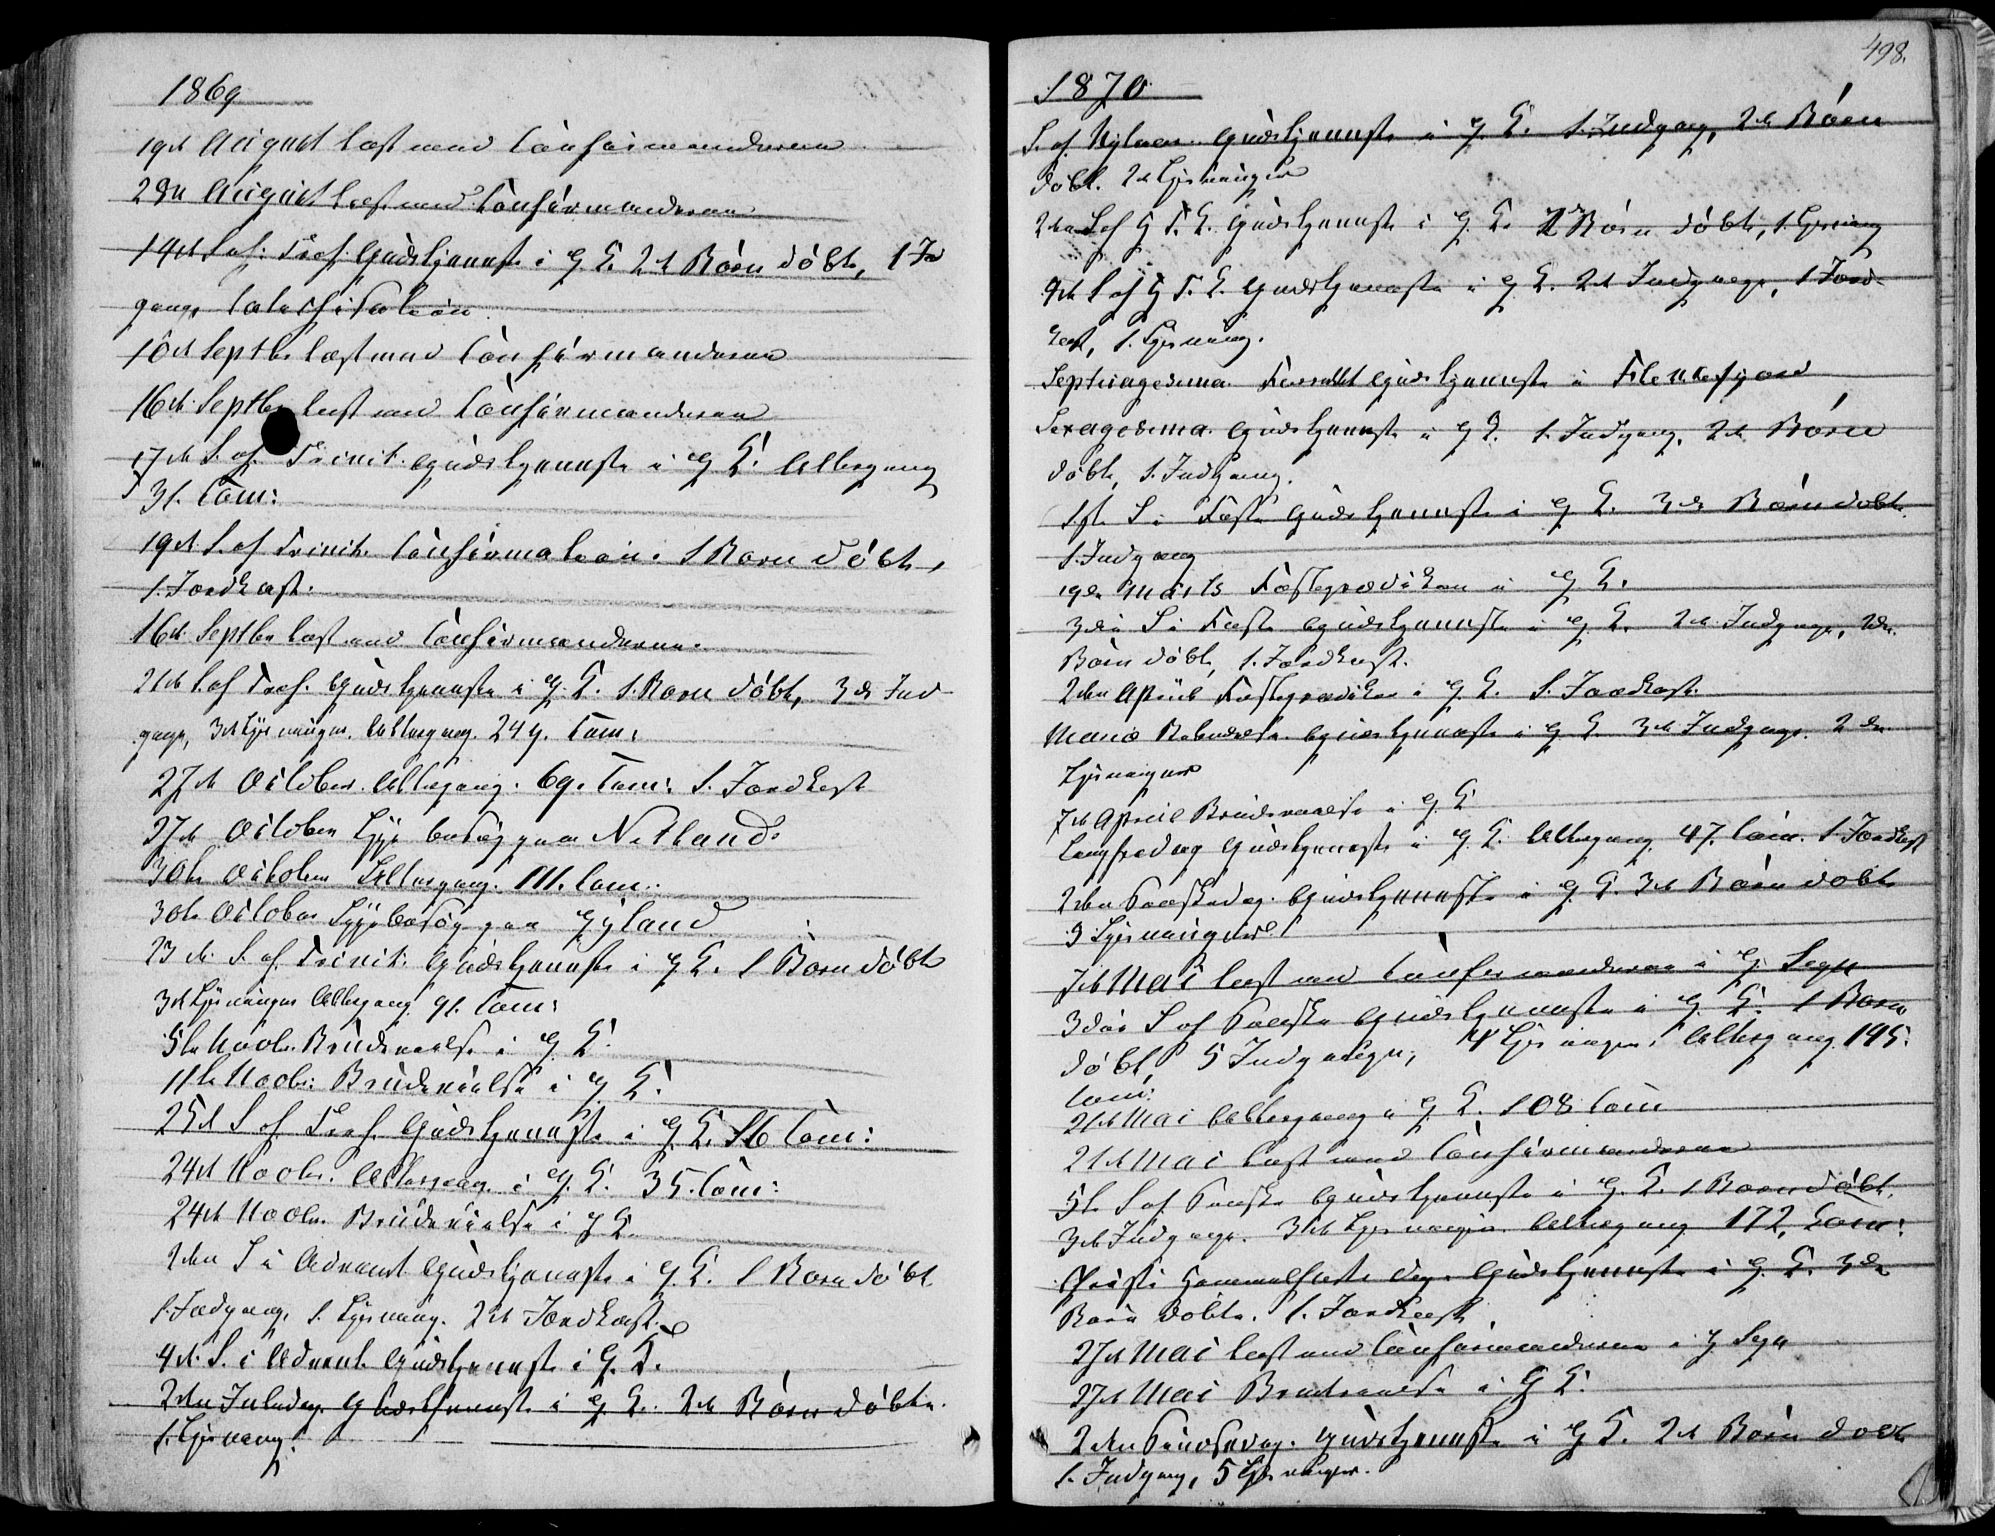 1869
19de August læst med Confirmanderne
2den August læst med Confirmanderne
14de S. af. Tref. Gudstjeneste i G. K. 2de Børn døbte, 1 Ind
gang, Catechisation.
10de Septbr læst med Confirmanderne
16de Septbr læst med Confirmanderne
17de S. af. Trinit. Gudstjeneste i G K. Altergang
31. Com:
19de S. af Trinit. Confirmation. 1 Barn døbt,
1. Jordkast.
16de Septbr læst med Confirmanderne.
21de S. af Tref. Gudstjeneste i G. K. 1. Barn døbt, 3de Ind
gange, 3de Lysninger. Altergang. 249. Com:
27de October. Altergang. 69. Com: 1. Jordkast
27de October Syge besøg paa Netland.
30te October Altergang. 111. Com:
30te October Sygebesøg paa Gyland
23de S. af. Trinit. Gudstjeneste i G K. 1 Barn døbt
3de Lysninger Altergang 91. Com:
5te Novbr. Brudevielse i G. K.
11te Novbr: Brudevielse i G K.
25de S af Tref. Gudstjeneste i G K. 16 Com:
24de Novbr. Altergang i G. K. 35. Com:
24de Novbr. Brudevielse i G K.
2den S i Advent Gudstjeneste i G. K. 1 Barn døbt
1. Indgang, 1. Lysning. 2de Jordkast.
4de S. i Advent Gudstjeneste i G. K.
2den Juledag. Gudstjeneste i G. K. 2de Børn døbte.
1. Lysning.
498.
1870
S. af. Nytaar. Gudstjeneste i G. K. 1. Indgang, 2de Børn
døbt. 2de Lysninger
2den S af H T. K. Gudstjeneste i G. K. Børn døbt, 1. Lysning
4de S af H T. K. Gudstjeneste i G K. 2de Indgange, 1 Jord-
kast, 1. Lysning.
Septuagesima. Forrettet Gudstjeneste i Flekkefjord
Sexagesima. Gudstjeneste i G K. 1. Indgang, 2de Børn
døbt, 1. Indgang.
1ste S i Faste Gudstjeneste i G K. 3de Børn døbt.
1. Indgang
19de Marts Fasteprædiken i G K.
3die S i Faste Gudstjeneste i G. K. 2de Indgange, 2de
Børn døbt, 1. Jordkast.
2den April Fasteprædiken i G. K. 1. Jordkast.
Mariæ Bebudelse Gudstjeneste i G K 3de Indgange. 2de
Lysninger
7de April Brudevielse i G. K
Langfredag Gudstjeneste i G. K. Altergang 47. Com. 1. Jordkast
2den Paaskedag. Gudstjeneste i G K. 3de Børn døbt
3 Lysninger
7de Mai læst med Confirmanderne i G. Sogn
3die S af Paaske Gudstjeneste i G K. 1 Barn
døbt, 5 Indgange, 4 Lysninger, Altergang 195.
Com:
21de Mai Altergang i G K. 108 Com
21de Mai læst med Confirmanderne
5te S af Paaske Gudstjeneste i G. K. 1 Barn døbt.
3de Indgange. 3de Lysninger. Altergang 172, Com:
Christi Himmelfarts dag. Gudstjeneste i G. K. 3de
Børn døbte. 1. Jordkast
27de Mai læst med Confirmanderne i G Sogn
27de Mai Brudevielse i G K.
2den Pindsedag. Gudstjeneste i G K. 2de Børn døbt
1. Indgang, 5 Lysninger.